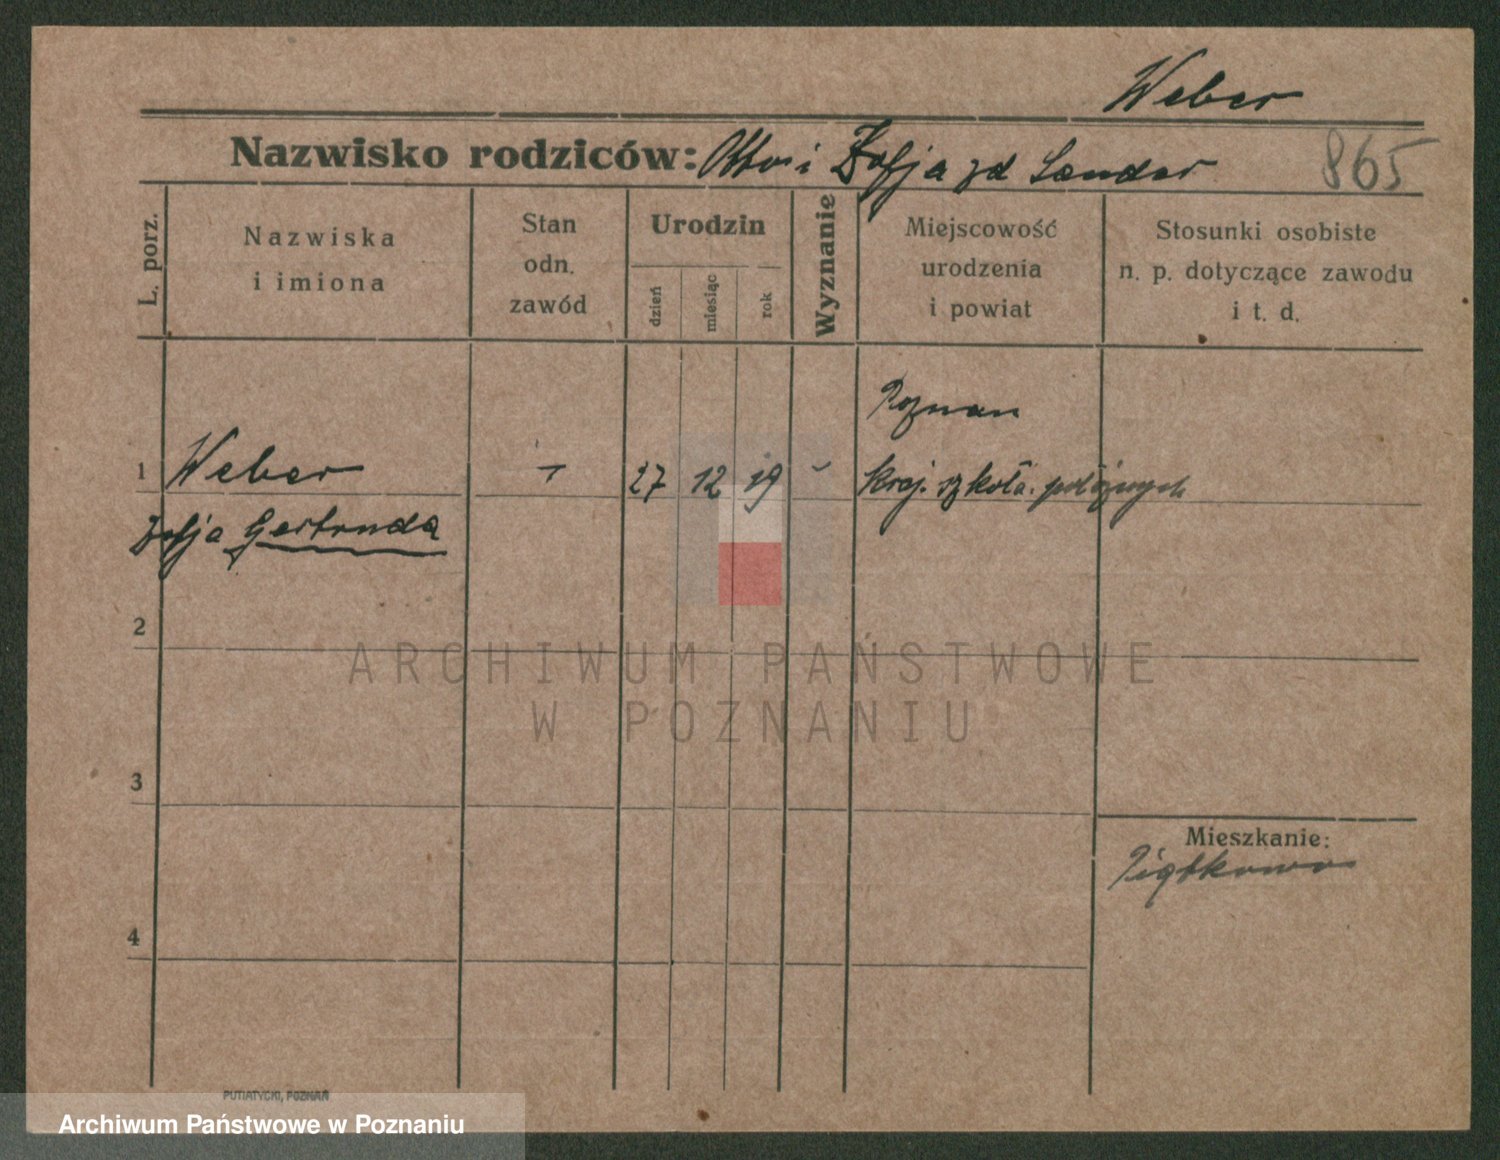 Weber
Nazwisko rodziców: Otto i Zofja zd Sander
865
L. porz.
Nazwiska
i imiona
Stan
odn.
zawód
Urodzin
dzień
miesiąc
rok
Wyznanie
Miejscowość
urodzenia
i powiat
Stosunki osobiste
n. p. dotyczące zawodu
i t. d.
Poznan
1 Weber 27 12 19 Kraj. szkoła położnych
Zofja Gertruda
2
ARCHIWUM PAŃSTWOWE
W POZNANIU
3
Mieszkanie:
Piątkowo
4
PUTIATYCKI, POZNAŃ
Archiwum Państwowe w Poznaniu